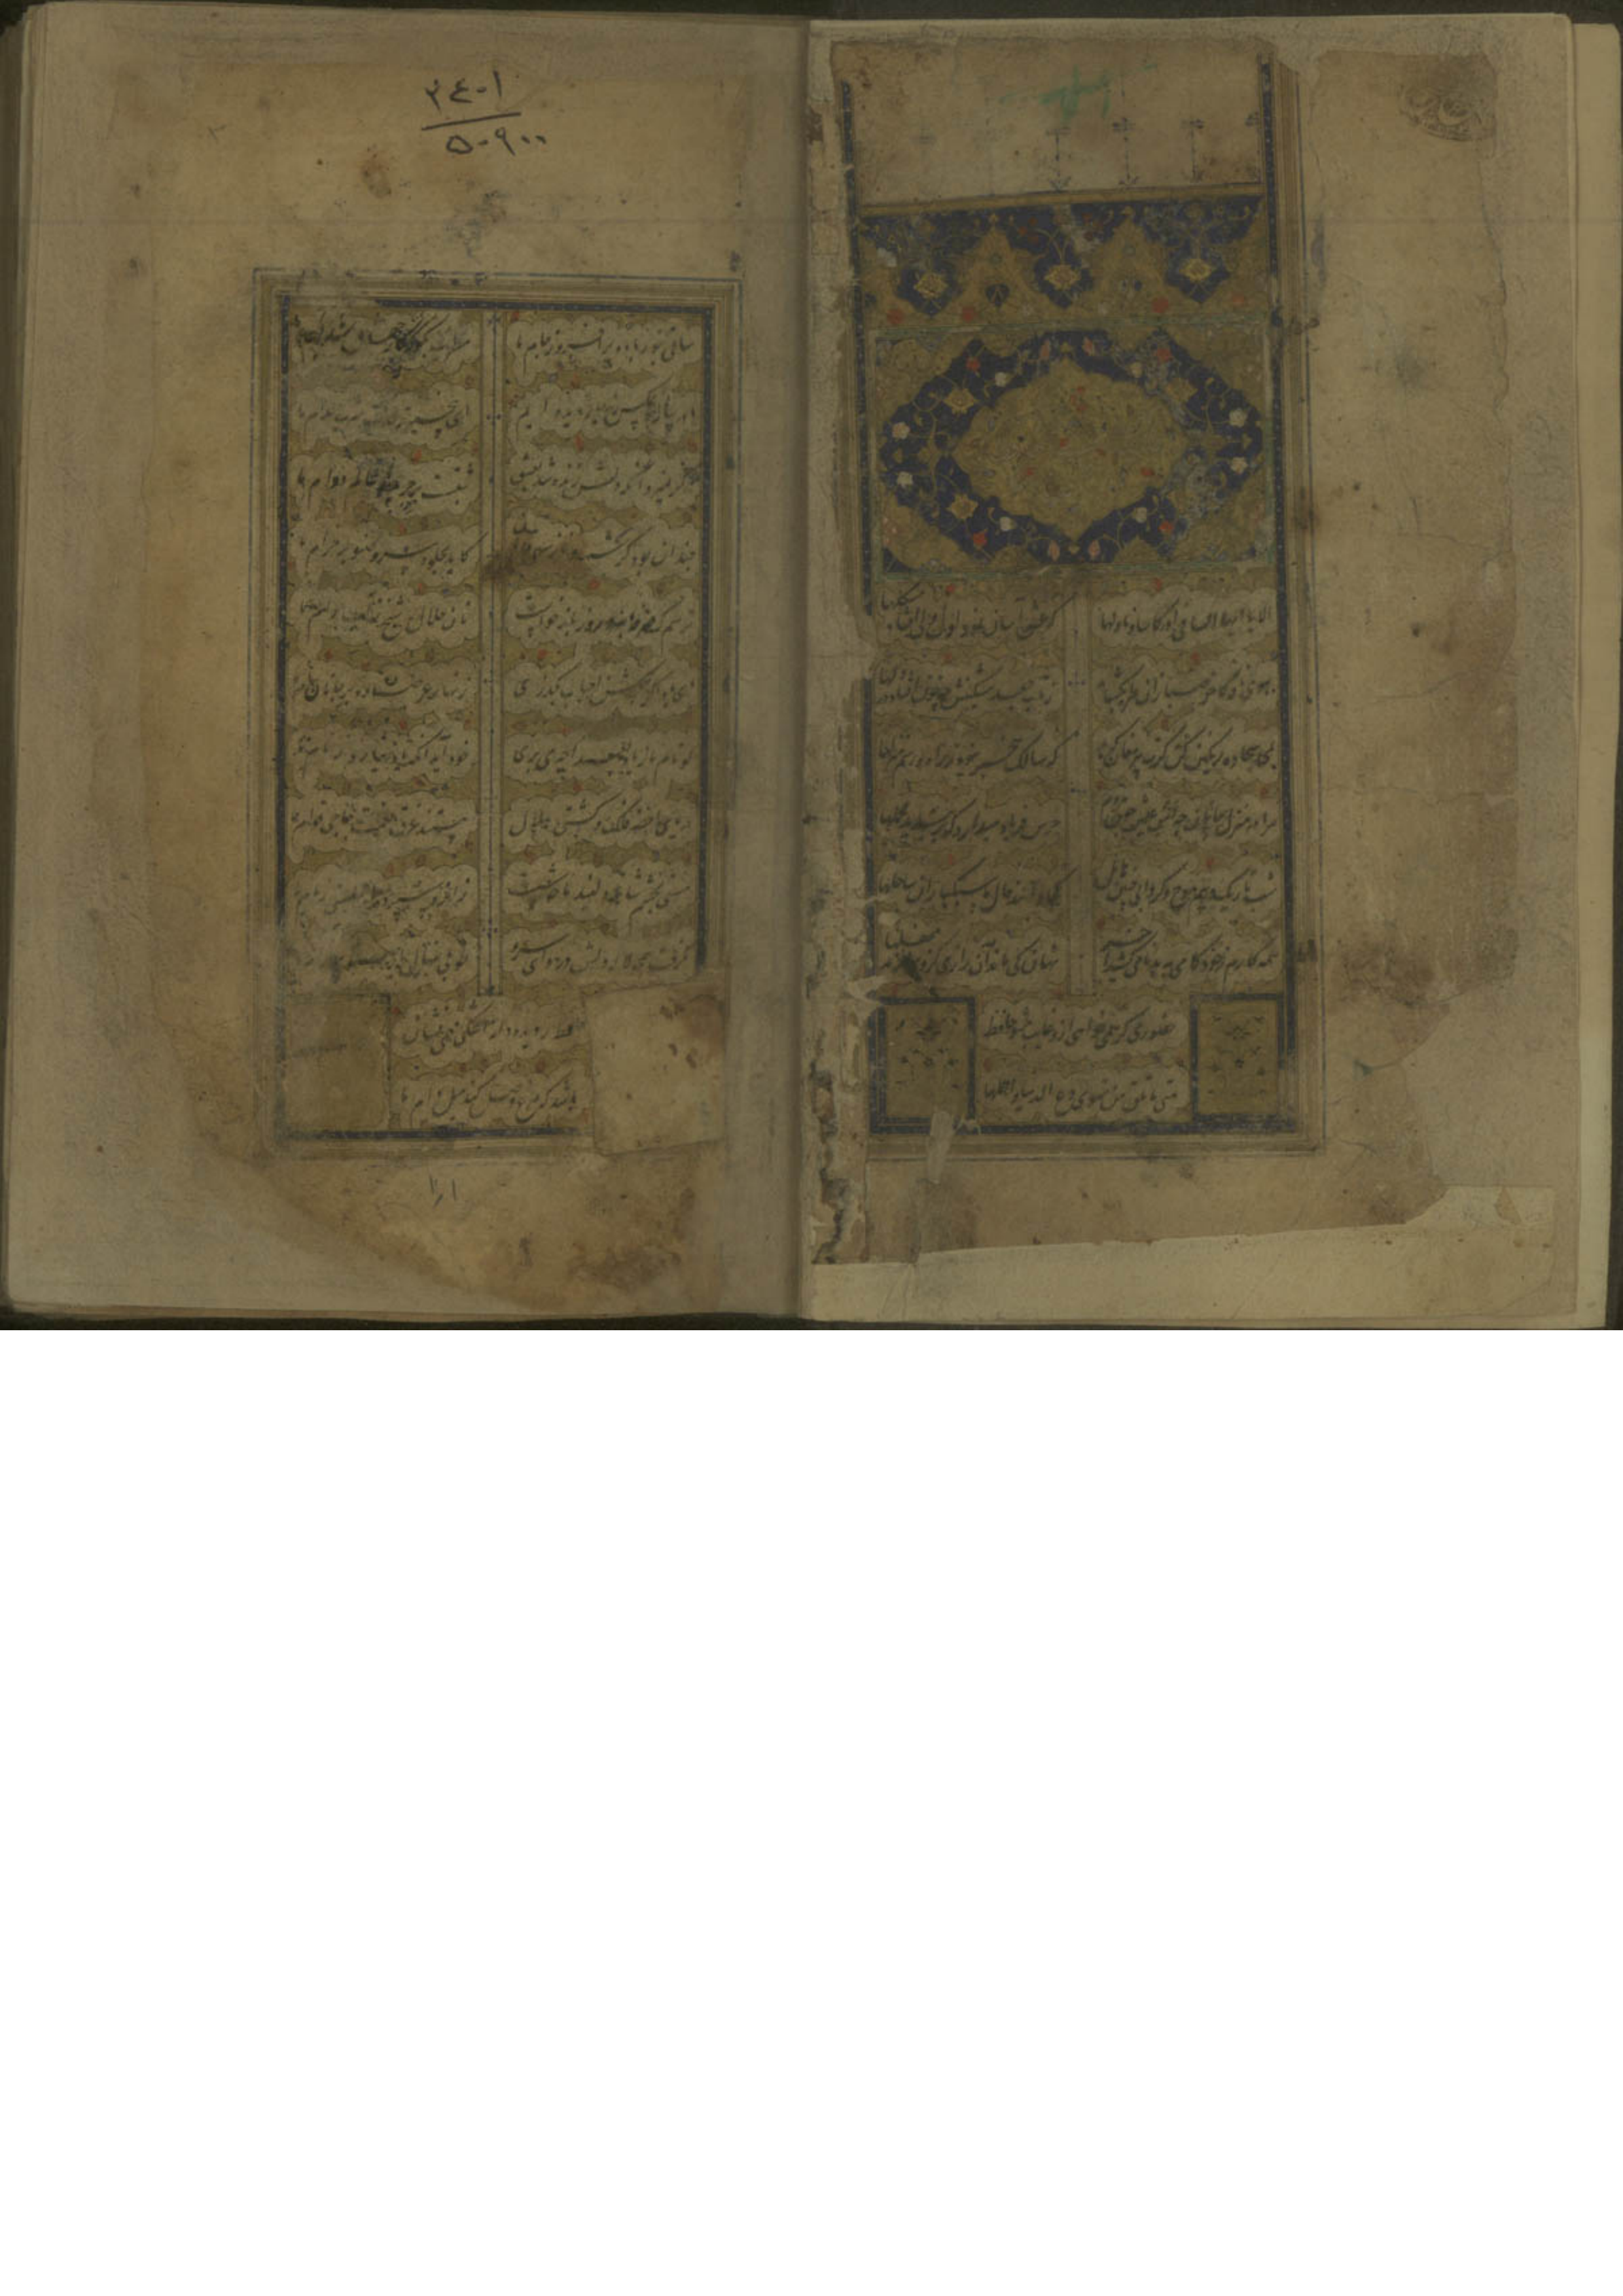 الا یا ایها الساقی ادر کاسا و ناولها که عشق آسان نمود اول ولی افتاد مشکلها
ببوی نافه کاخر صبا زان طره بکشاید ز تاب جعد مشکینش چه خون افتاد در دلها
بمی سجاده رنکین کن کرت پیر مغان کوید که سالک بیخبر نبود ز راه و رسم منزلها
مرا در منزل جانان چه امن عیش چون هر دم جرس فریاد میدارد که بربندید محملها
شب تاریک و بیم موج و کردابی چنین هایل کجا دانند حال ما سبکباران ساحلها
همه کارم ز خود کامی به بدنامی کشید آخر نهان کی ماند آن رازی کزو سازند محفلها
حضوری کر همی خواهی ازو غایب مشو حافظ
متی ما تلق من تهوی دع الدنیا و اهملها
۳۴۰۱
۵۰۹۰۰
ساقی بنور باده برافروز جام ما مطرب بکو که کار جهان شد بکام ما
ما در پیاله عکس رخ یار دیده ایم ای بیخبر ز لذت شرب مدام ما
هرکز نمیرد آنکه دلش زنده شد بعشق ثبتست بر جریده عالم دوام ما
چندان بود کرشمه و ناز سهی قدان کاید بجلوه سرو صنوبر خرام ما
ترسم که صرفه نبرد روز بازخواست نان حلال شیخ ز آب حرام ما
ای باد اکر بکلشن احباب بکذری زنهار عرضه ده بر جانان پیام ما
کو نام ما ز یاد بعمدا چه می بری خود آید آنکه یاد نیاری ز نام ما
دریای اخضر فلک و کشتی هلال هستند غرق نعمت حاجی قوام ما
مستی بچشم شاهد دلبند ما خوشست زانرو سپرده اند بمستی زمام ما
بکرفت همچو لاله دلم در هوای سرو
حافظ ز دیده دانه اشکی همی فشان
باشد که مرغ وصل کند میل دام ما